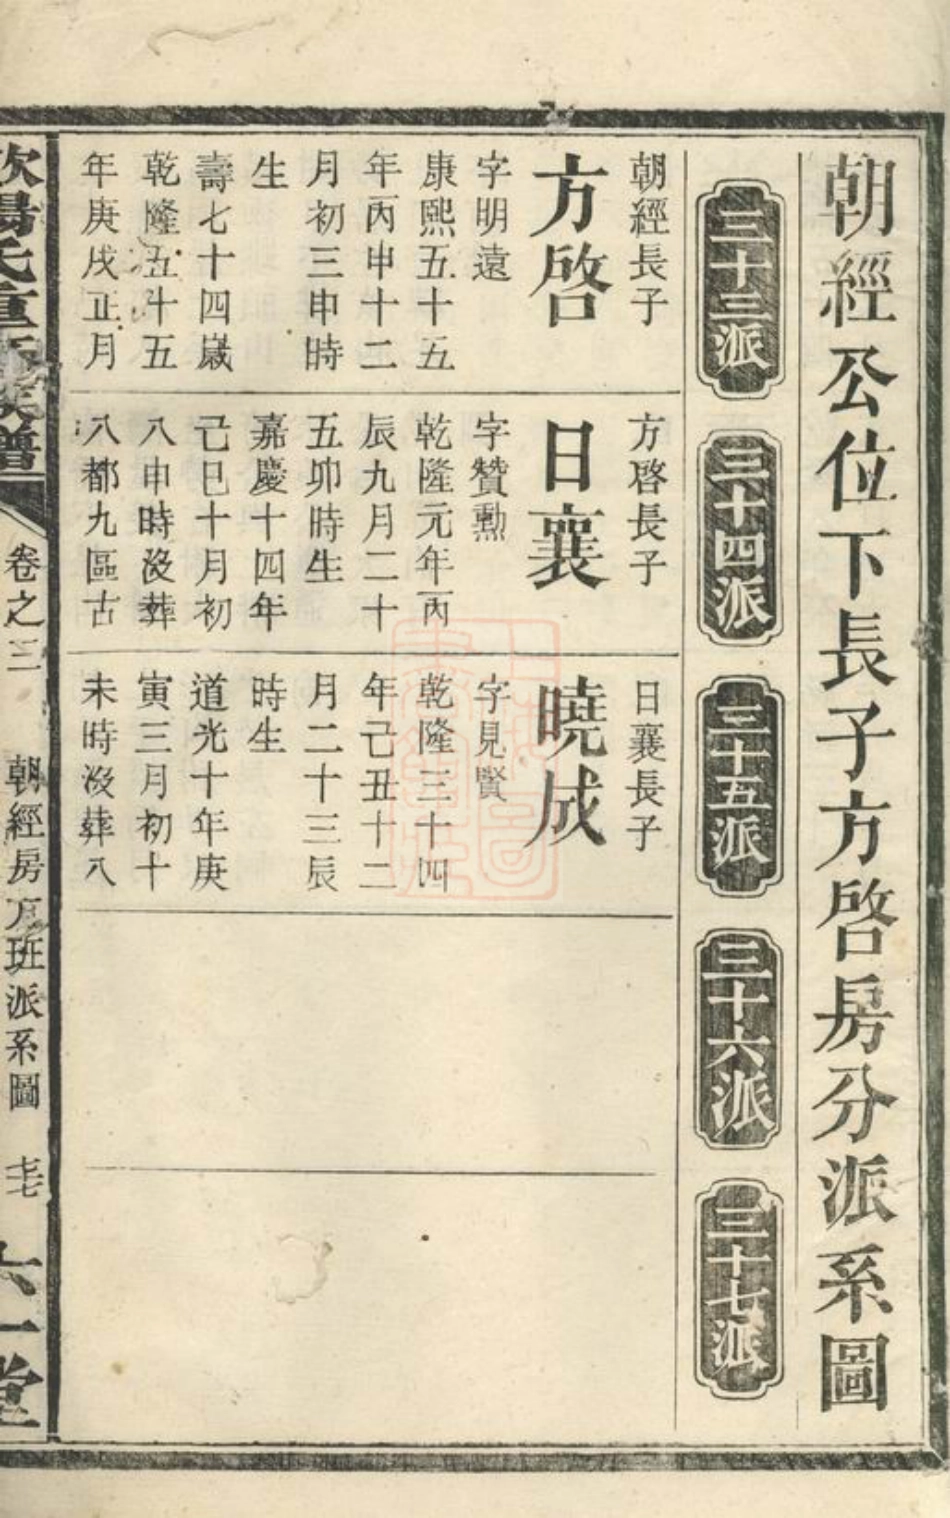 朝經公位下長子方啓房分派系圖
三十三派
三十四派
三十五派
三十六派
三十七派
朝經長子
方啓
字明遠
康熙五十五
年丙申十二
月初三申時
生
壽七十四歲
乾隆五十五
年庚戌正月
方啓長子
日襄
字贊勲
乾隆元年丙
辰九月二十
五卯時生
嘉慶十四年
己巳十月初
八申時沒葬
八都九區古
日襄長子
曉成
字見賢
乾隆三十四
年己丑十二
月二十三辰
時生
道光十年庚
寅三月初十
未時沒葬八
卷之三
朝經房方班派系圖
六一堂